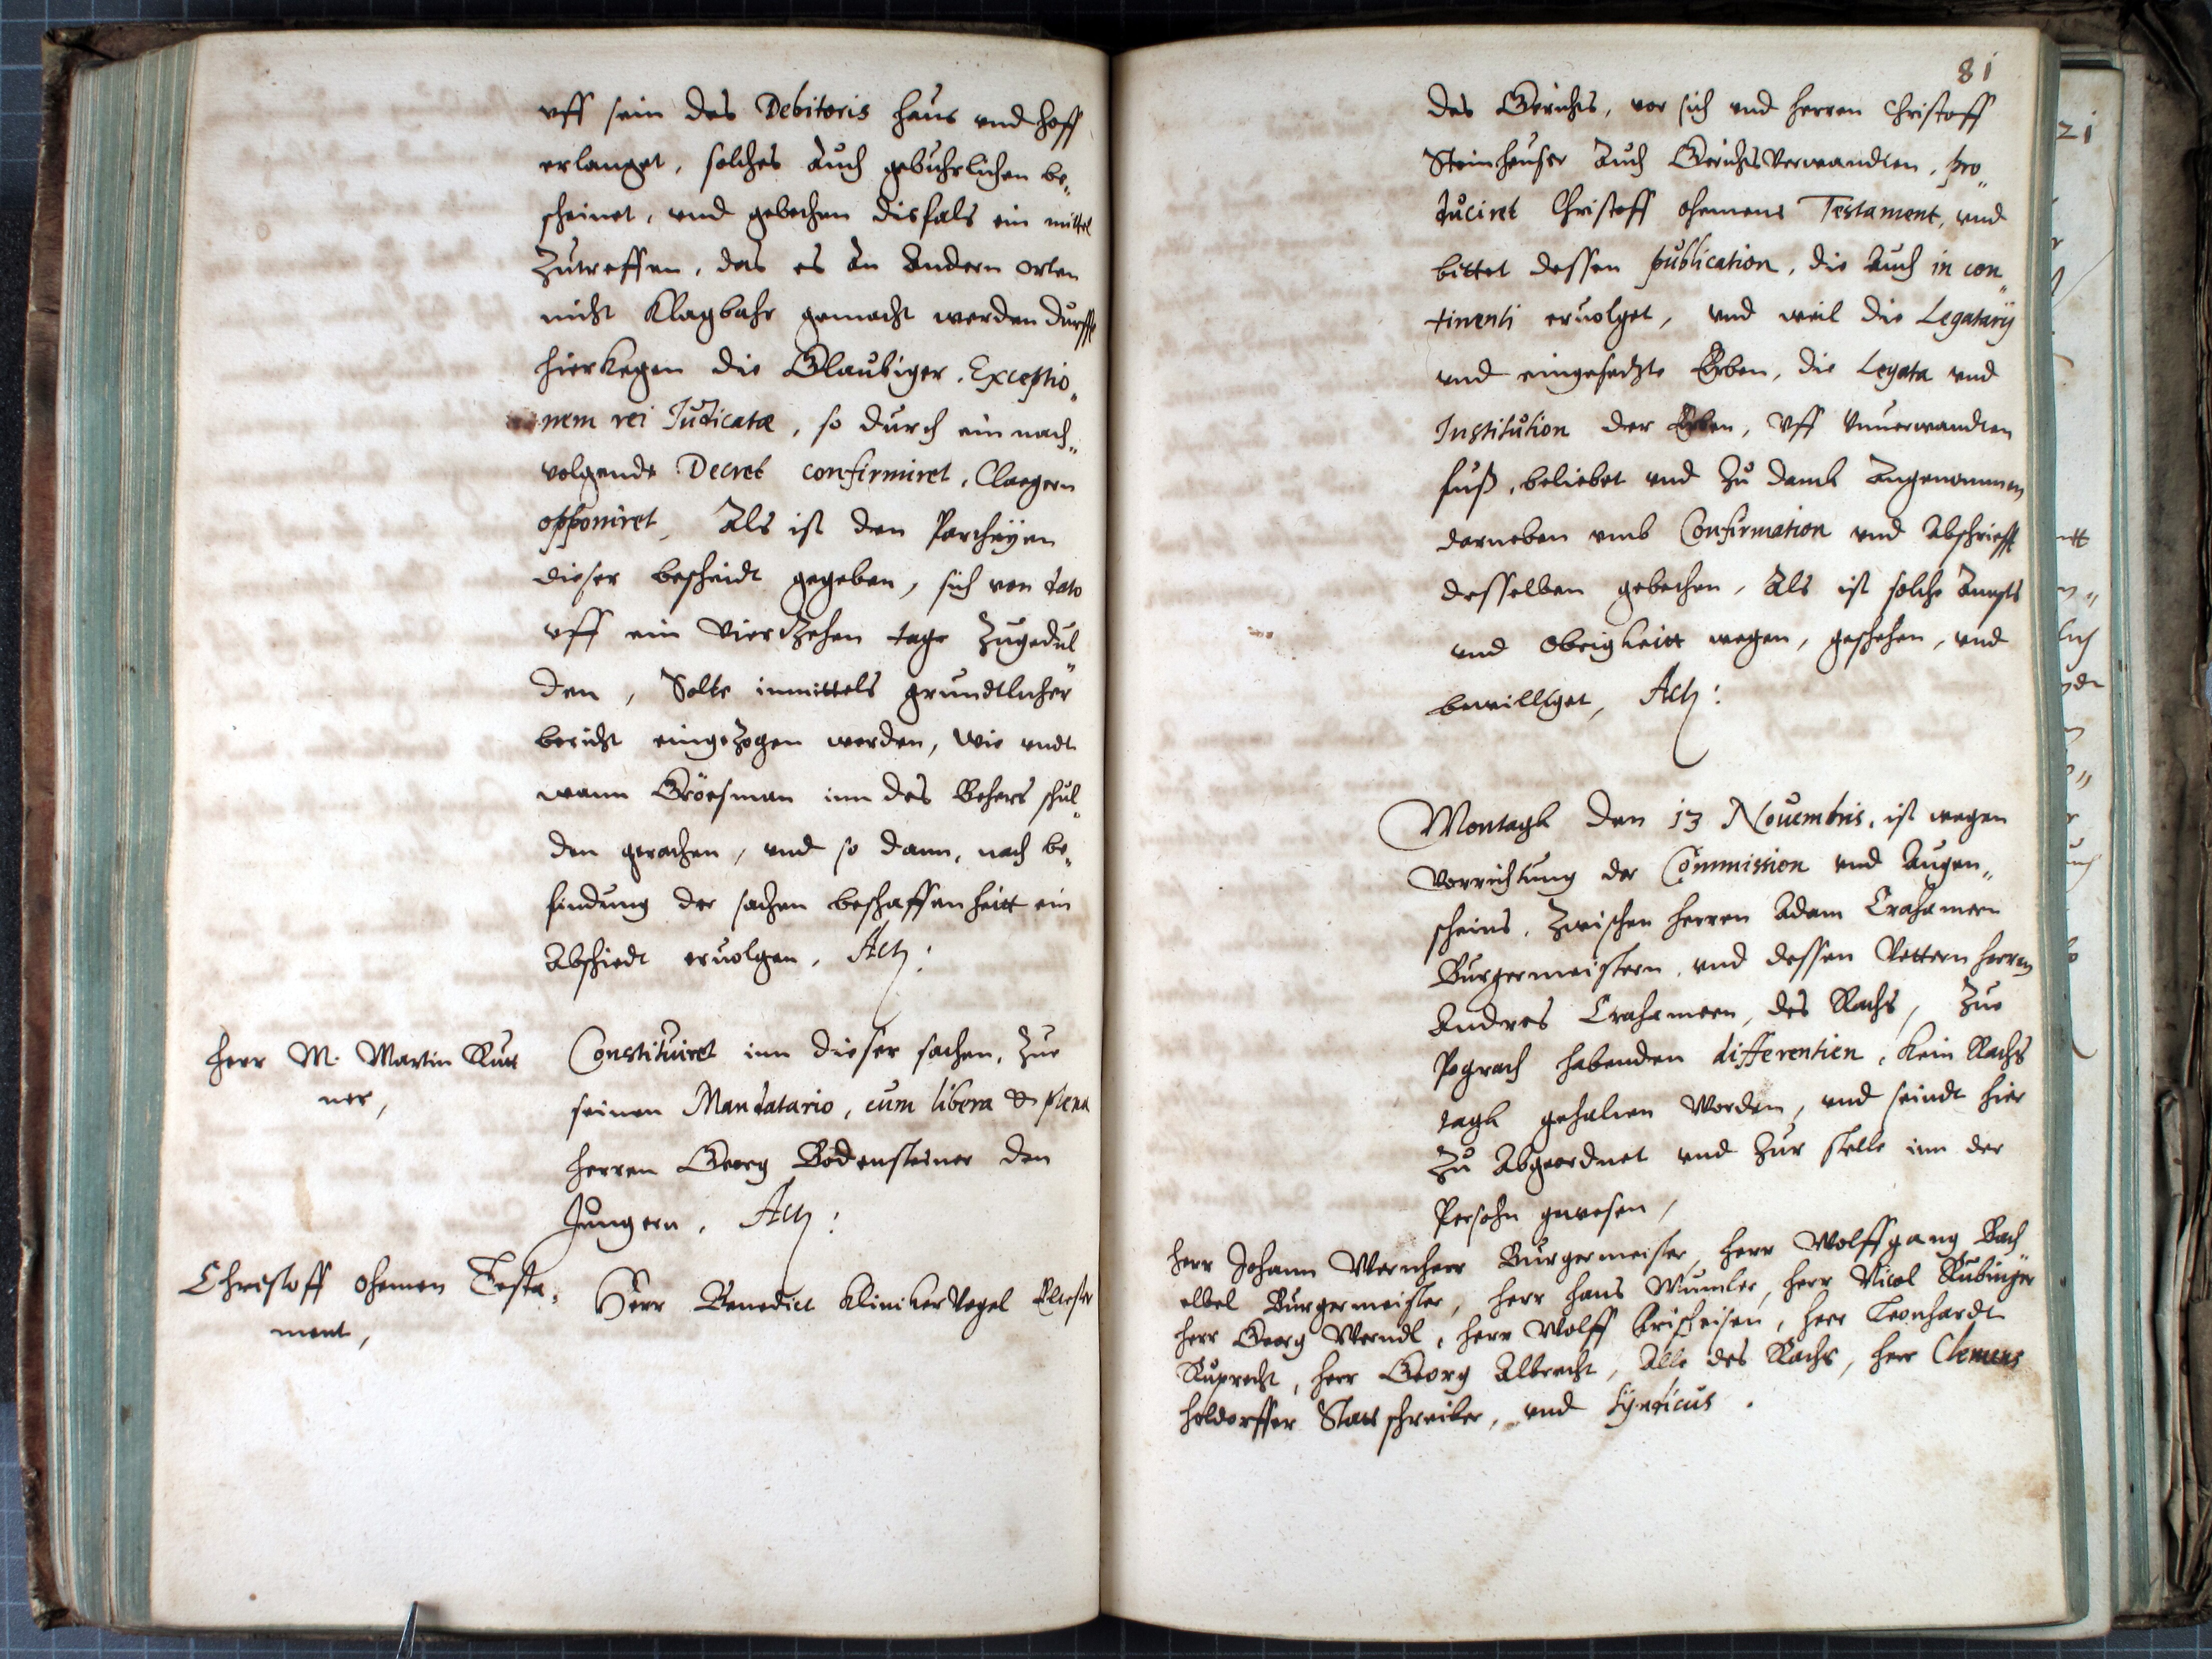 vff sein des Debitoris haus vnd hoff
erlanget, solches auch gebuhrlichen be„
scheinet, vnd gebethen disfals ein mittel
Zutreffen, das es an andern orten
nicht Klagbahr gemacht werden durffte
hierkegen die Glaubiger, Exceptio„
nem rei Judicatæ, so durch ein nach„
volgende Decret confirmiret, Claegern
opponiret, Als ist den Partheyen
dieser bescheidt gegeben, sich von dato
vff ein Vierdtzehen tage Zugedul„
den, Solte inmittels grundtlicher
bericht eingezogen werden, wie vndt
wann Gröesman inn des Behers schul„
den gerathen, vnd so dann, nach be„
findung der sachen beschaffenheitt ein
Abschiedt ervolgen, Act:
Herr M. Martin Rutt
ner,
Constituiret inn dieser sachen, Zue
seinen Mandatario, cum libera & plena
Herren Georg Bodensteiner den
Jungern, Act:
Christoff ohemen Testa„
ment,
Herr Benedict Klinkervogel Eltester
81
des Gerichts, vor sich vnd herren Christoff
Steinheuser auch Gerichts Verwandten, pro„
duciret Christoff ohemens Testament, vnd
bittet dessen publication, die auch in con„
tinenti ervolget, vnd weil die Legatarij
vnd eingesetzte Erben, die Legata vnd
Institution der Erben, vff vnuerwandten
fuß, beliebet vnd Zu danck angenommen
darneben vmb Confirmation vnd abschriefft
desselben gebethen, Als ist solche Ampts
vnd obrigkeitt wegen, geschehen, vnd
bewilliget, Act:
Montagk den 13 Nouembris, ist wegen
Verrichtung der Commission vnd augen„
scheins, Zwischen herren Adam Crahamern
Burgermeistern, vnd dessen Vettern herren
Andres Crahamern, des Raths, Zue
Pograth habenden differentien, Kein Raths
tagk gehalten Worden, vnd seindt hier
Zu abgeordnet vnd Zur stelle inn der
Persohn gewesen,
Herr Johann Wernherr Burgermeister, Herr Wolffgang Bach„
elbel Burgermeister, Herr Hans Wumler, Herr Nicol Rubinger
Herr Georg Werndl, Herr Wolff Frischeisen, Herr Leonhardt
Ruprecht, Herr Georg Albrecht, Alle des Raths, Herr Clemens
Holdorffer Statt schreiber, vnd Syndicus.